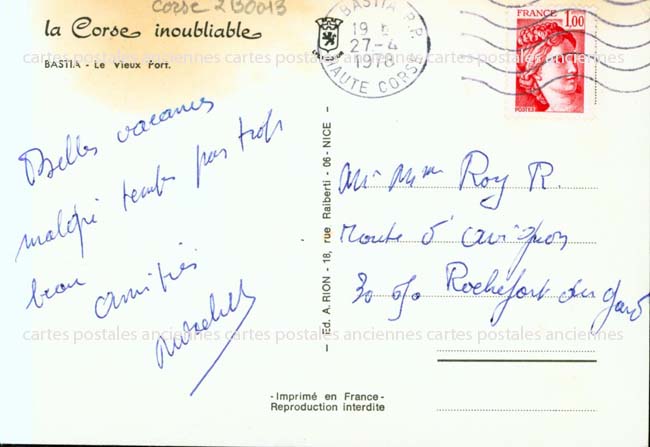 Corse 2B0013
la Corse inoubliable
BASTIA - Le Vieux Port.
BASTIA R.P.
19 H
27-4
1978
HAUTE CORSE
FRANCE
1,00
POSTES
cartes postales anciennes cartes postales anciennes cartes postales anciennes
Belles vacances
malgré temps pas trop
beau amitiés
Mr Mme Roy R.
Route d'avignon
30 650 Rochefort du gard
- Ed. A. RION - 18, rue Raiberti - 06 - NICE -
cartes postales anciennes cartes postales anciennes cartes postales anciennes
- Imprimé en France -
Reproduction interdite